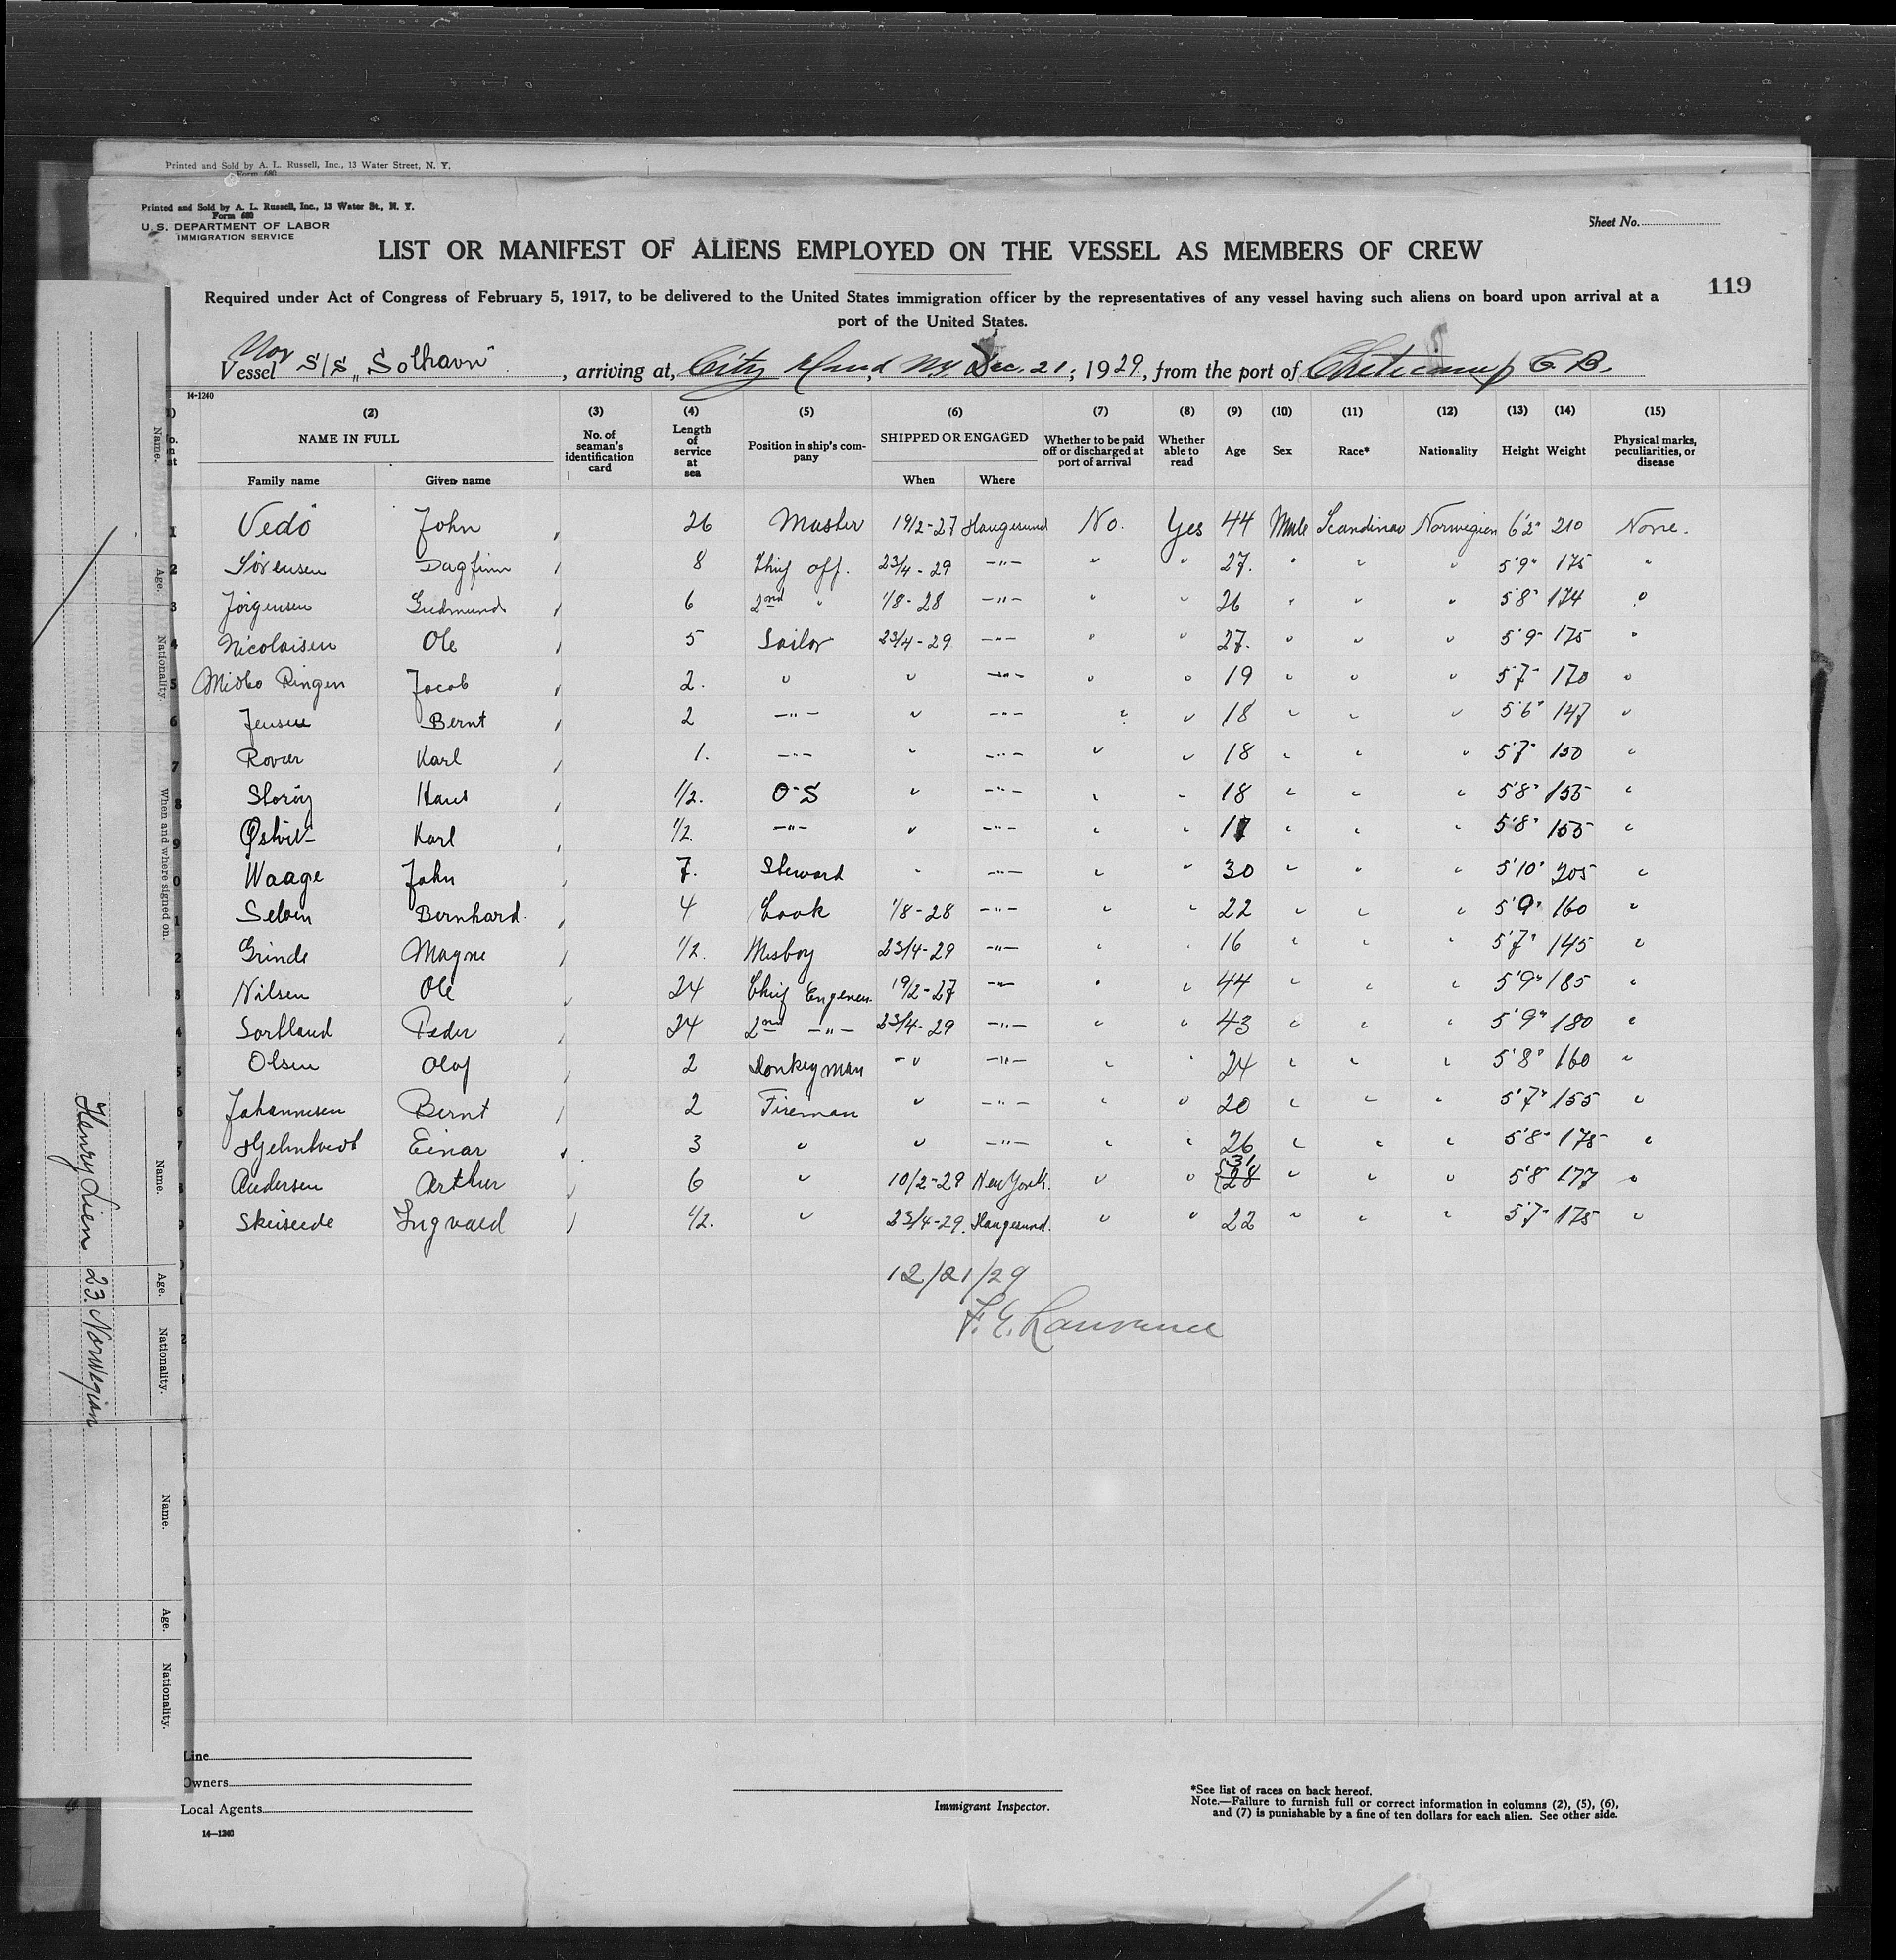 Printed and Sold by A. L. Russell, Inc., 13 Water Street, N. Y.
Form 680
Printed and Sold by A. L. Russell, Inc., 13 Water St., N. Y.
Form 680
U. S. DEPARTMENT OF LABOR
IMMIGRATION SERVICE
Sheet No.
LIST OR MANIFEST OF ALIENS EMPLOYED ON THE VESSEL AS MEMBERS OF CREW
119
Required under Act of Congress of February 5, 1917, to be delivered to the United States immigration officer by the representatives of any vessel having such aliens on board upon arrival at a
port of the United States.
Nor
Vessel S/S „Solhavn" , arriving at, City Island, NY Dec. 21, 1929, from the port of Cheticamp C. B.
14-1240
(2) (3) (4) (5) (6) (7) (8) (9) (10) (11) (12) (13) (14) (15)
NAME IN FULL No. of seaman's identification card Length of service at sea Position in ship's company SHIPPED OR ENGAGED Whether to be paid off or discharged at port of arrival Whether able to read Age Sex Race* Nationality Height Weight Physical marks, peculiarities, or disease
Family name Given name When Where
1 Vedö John 26 Master 19/2-27 Haugesund No. Yes 44 Male Scandinav Norwegian 6'2" 210 None.
2 Sörensen Dagfinn 8 Chief off. 23/4-29 -"- " " 27. " " " 5'9" 175 "
3 Jörgensen Gudmund 6 2nd " 1/8-28 -"- " " 26 " " " 5'8" 174 "
4 Nicolaisen Ole 5 Sailor 23/4-29 -"- " " 27. " " " 5'9" 175 "
5 Ringen Jacob 2. " " -"- " " 19 " " " 5'7" 170 "
6 Jensen Bernt 2 -"- " -"- " " 18 " " " 5'6" 147 "
7 Rovær Karl 1. -"- " -"- " " 18 " " " 5'7" 150 "
8 Hans 1/2. O-S " -"- " " 18 " " " 5'8" 155 "
9 Karl 1/2. -"- " -"- " " 17 " " " 5'8" 155 "
0 Waage John 7. Steward " -"- " " 30 " " " 5'10" 205 "
1 Bernhard. 4 Cook 1/8-28 -"- " " 22 " " " 5'9" 160 "
2 Grinde Magne 1/2. Misboy 23/4-29 -"- " " 16 " " " 5'7" 145 "
3 Nilsen Ole 24 Chief Engeneer 19/2-27 -"- " " 44 " " " 5'9" 185 "
4 Sortland Peder 24 2nd -"- 23/4-29 -"- " " 43 " " " 5'9" 180 "
5 Olsen Olaf 2 Donkeyman -" -"- " " 24 " " " 5'8" 160 "
6 Johannesen Bernt 2 Fireman " -"- " " 20 " " " 5'7" 155 "
7 Hjelmtvedt Einar 3 " " -"- " " 26 " " " 5'8" 175 "
31
8 Andersen Arthur 6 " 10/2-29 New York. " " 28 " " " 5'8 177 "
9 Ingvald 1/2. " 23/4-29. Haugesund. " " 22 " " " 5'7" 175 "
12/21/29
F. E. Lawrence
Line
Owners
Local Agents
14-1240
Immigrant Inspector.
*See list of races on back hereof.
Note.—Failure to furnish full or correct information in columns (2), (5), (6),
and (7) is punishable by a fine of ten dollars for each alien. See other side.
Name. Age. Nationality. When and where signed on.
Name. Age. Nationality.
Henry Lien 23. Norwegian
Name. Age. Nationality.